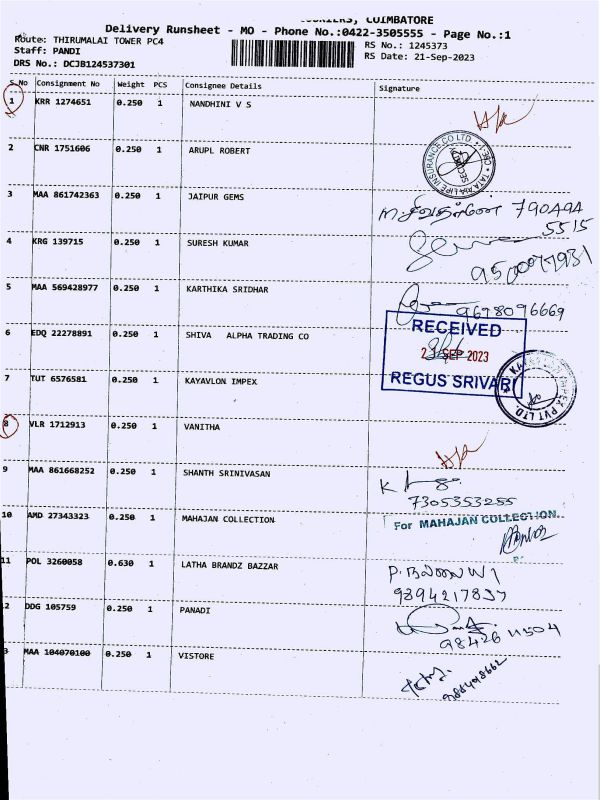 COIMBATORE
Delivery Runsheet - MO - Phone No.:0422-3505555 - Page No.:1
Route: THIRUMALAI TOWER PC4
RS No.: 1245373
Staff: PANDI
RS Date: 21-Sep-2023
DRS No.: DCJB124537301
S.No Consignment No Weight PCS Consignee Details Signature
1 KRR 1274651 0.250 1 NANDHINI V S
2 CNR 1751606 0.250 1 ARUPL ROBERT
TATA AIA LIFE INSURANCE CO LTD
3 MAA 861742363 0.250 1 JAIPUR GEMS
790494
5515
4 KRG 139715 0.250 1 SURESH KUMAR
5 MAA 569428977 0.250 1 KARTHIKA SRIDHAR
9678096669
6 EDQ 22278891 0.250 1 SHIVA ALPHA TRADING CO
RECEIVED
SEP 2023
REGUS SRIVARI
7 TUT 6576581 0.250 1 KAYAVLON IMPEX
PVT LTD.
8 VLR 1712913 0.250 1 VANITHA
9 MAA 861668252 0.250 1 SHANTH SRINIVASAN
7305353255
10 AMD 27343323 0.250 1 MAHAJAN COLLECTION
For MAHAJAN COLLECTION.
11 POL 3260058 0.630 1 LATHA BRANDZ BAZZAR
9894217837
2 DDG 105759 0.250 1 PANADI
98426 11504
3 MAA 104070100 0.250 1 VISTORE